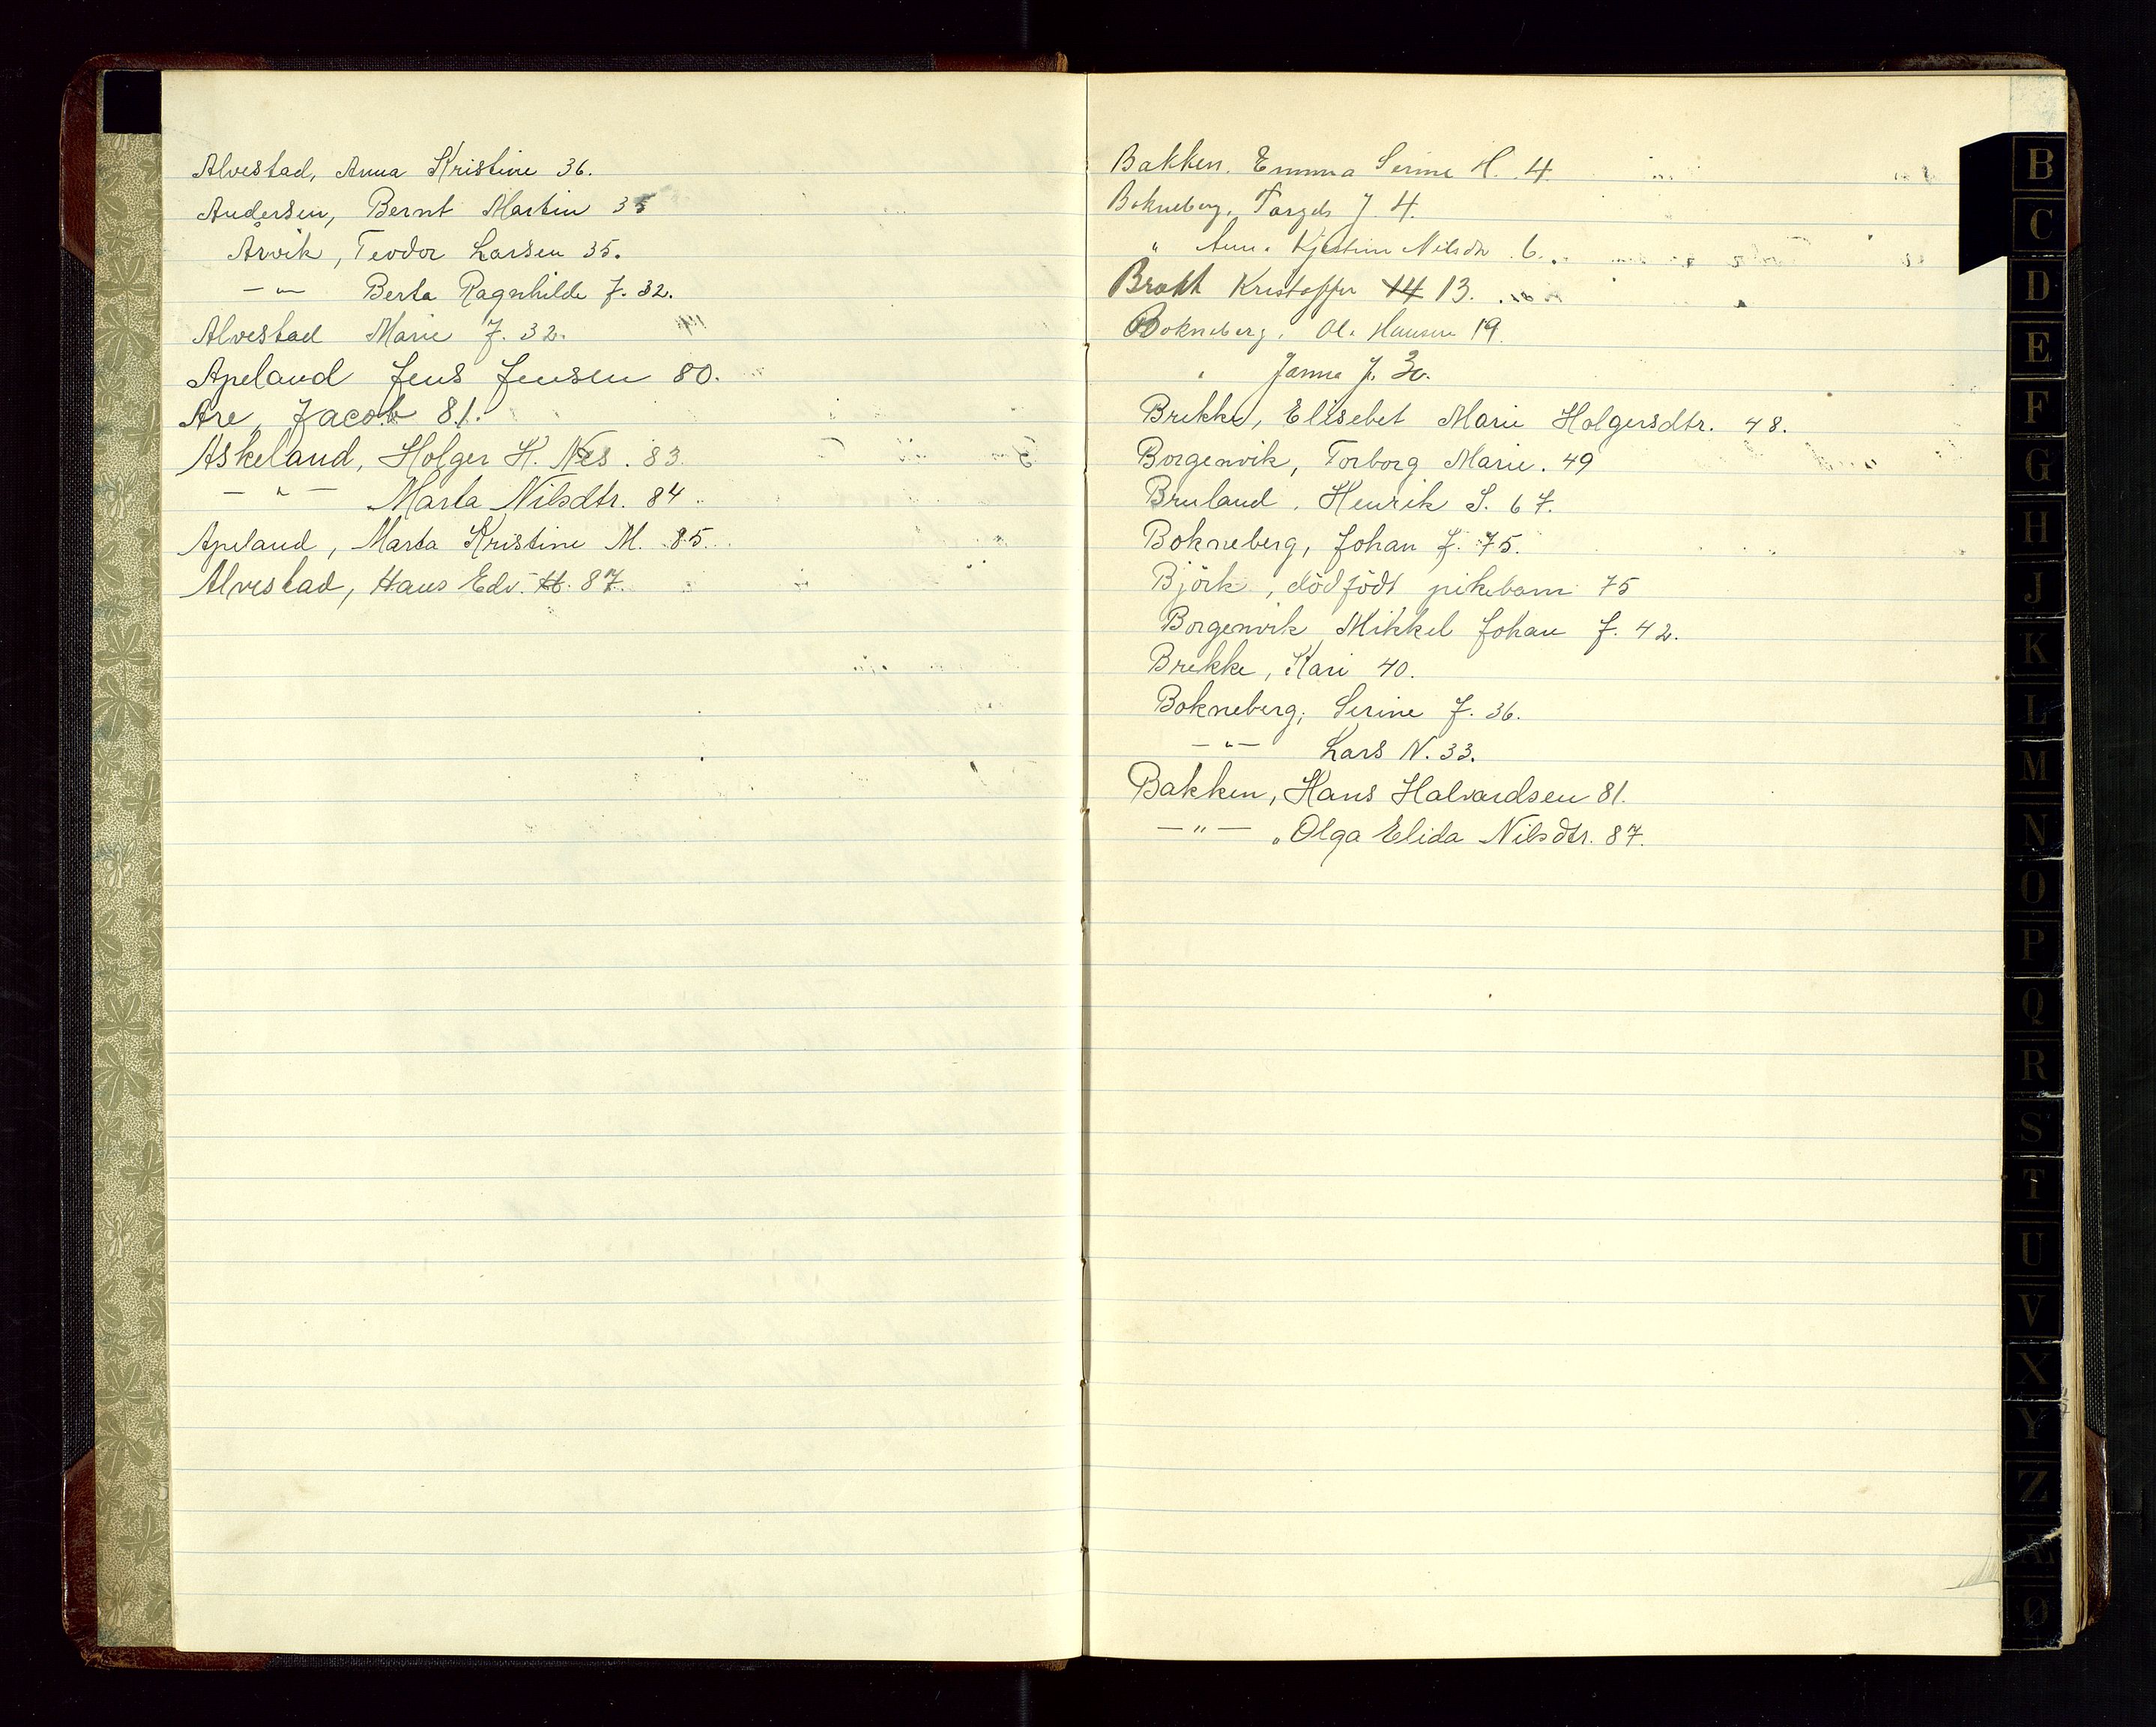 Alvestad, Anna Kristine 36.
Andersen, Bernt Martin 35
Årvik, Teodor Larsen 35.
—"— Berta Ragnhilde J. 32.
Alvestad Marie J. 32.
Apeland Jens Jensen 80.
Are, Jacob 81.
Askeland, Holger H. Nes. 83.
—"— Marta Nilsdtr. 84.
Apeland, Marta Kristine M. 85.
Alvestad, Hans Edv. H. 87.
Bakken, Emma Serine H. 4.
Bokneberg, J. 4.
" Nilsdtr 6.
Bratt Kristoffer 14 13.
Bokneberg, Ole Hansen 19.
" Janna J. 30.
Brekke, Elisebet Marie Holgersdtr. 48.
Borgenvik, Torborg Marie. 49
Bruland, Henrik S. 67.
Bokneberg, Johan J. 75.
Björk, dödfödt pikebarn 75
Borgenvik Mikkel Johan J. 42.
Brekke, Kari 40.
Bokneberg, Serine J. 36.
—"— Lars N. 33.
Bakken, Hans Halvardsen 81.
—"—, Olga Elida Nilsdtr. 87.
B
C
D
E
F
G
H
J
K
L
M
N
O
P
Q
R
S
T
U
V
X
Y
Z
Æ
Ø